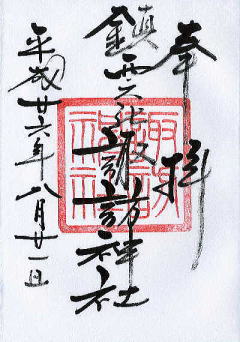 奉拝
鎮西大社諏訪神社
平成廿六年八月廿一日